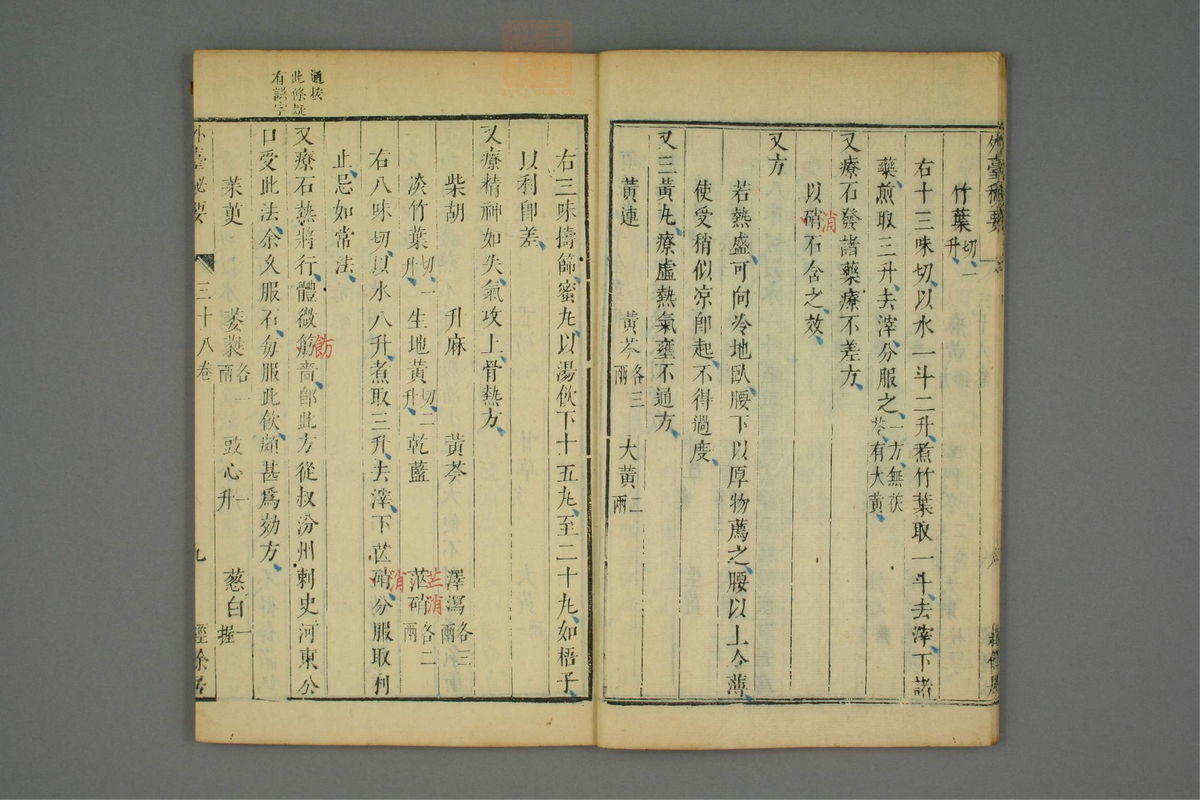 外臺秘要
竹葉切一升
右十三味切以水一斗二升煮竹葉取一斗去滓下諸
藥煎取三升去滓分服之一方無茯苓有大黃
又療石發諸藥療不差方
以硝石含之效
消
又方
若熱盛可向冷地臥腰下以厚物薦之腰以上令薄
使受稍似凉卽起不得過度
又三黃丸療虛熱氣壅不通方
黃連 黃芩各三兩 大黃二兩
右三味擣篩蜜丸以湯飲下十五丸至二十丸如梧子
以利卽差
又療精神如失氣攻上骨熱方
柴胡 升麻 黃芩 澤瀉各三兩
淡竹葉切一升 生地黃切二升 乾藍 芒硝各二兩
芒消
右八味切以水八升煮取三升去滓下芒硝分服取利
消
止忌如常法
又療石熱將行體微筋嗇卽此方從叔汾州刺史河東公
飭
口受此法余久服石每服此飲頗甚爲効方
茱萸 萎蕤各一兩 豉心一升 葱白一握
外臺秘要 三十八卷 九 經餘居
通按
此條疑
有誤字